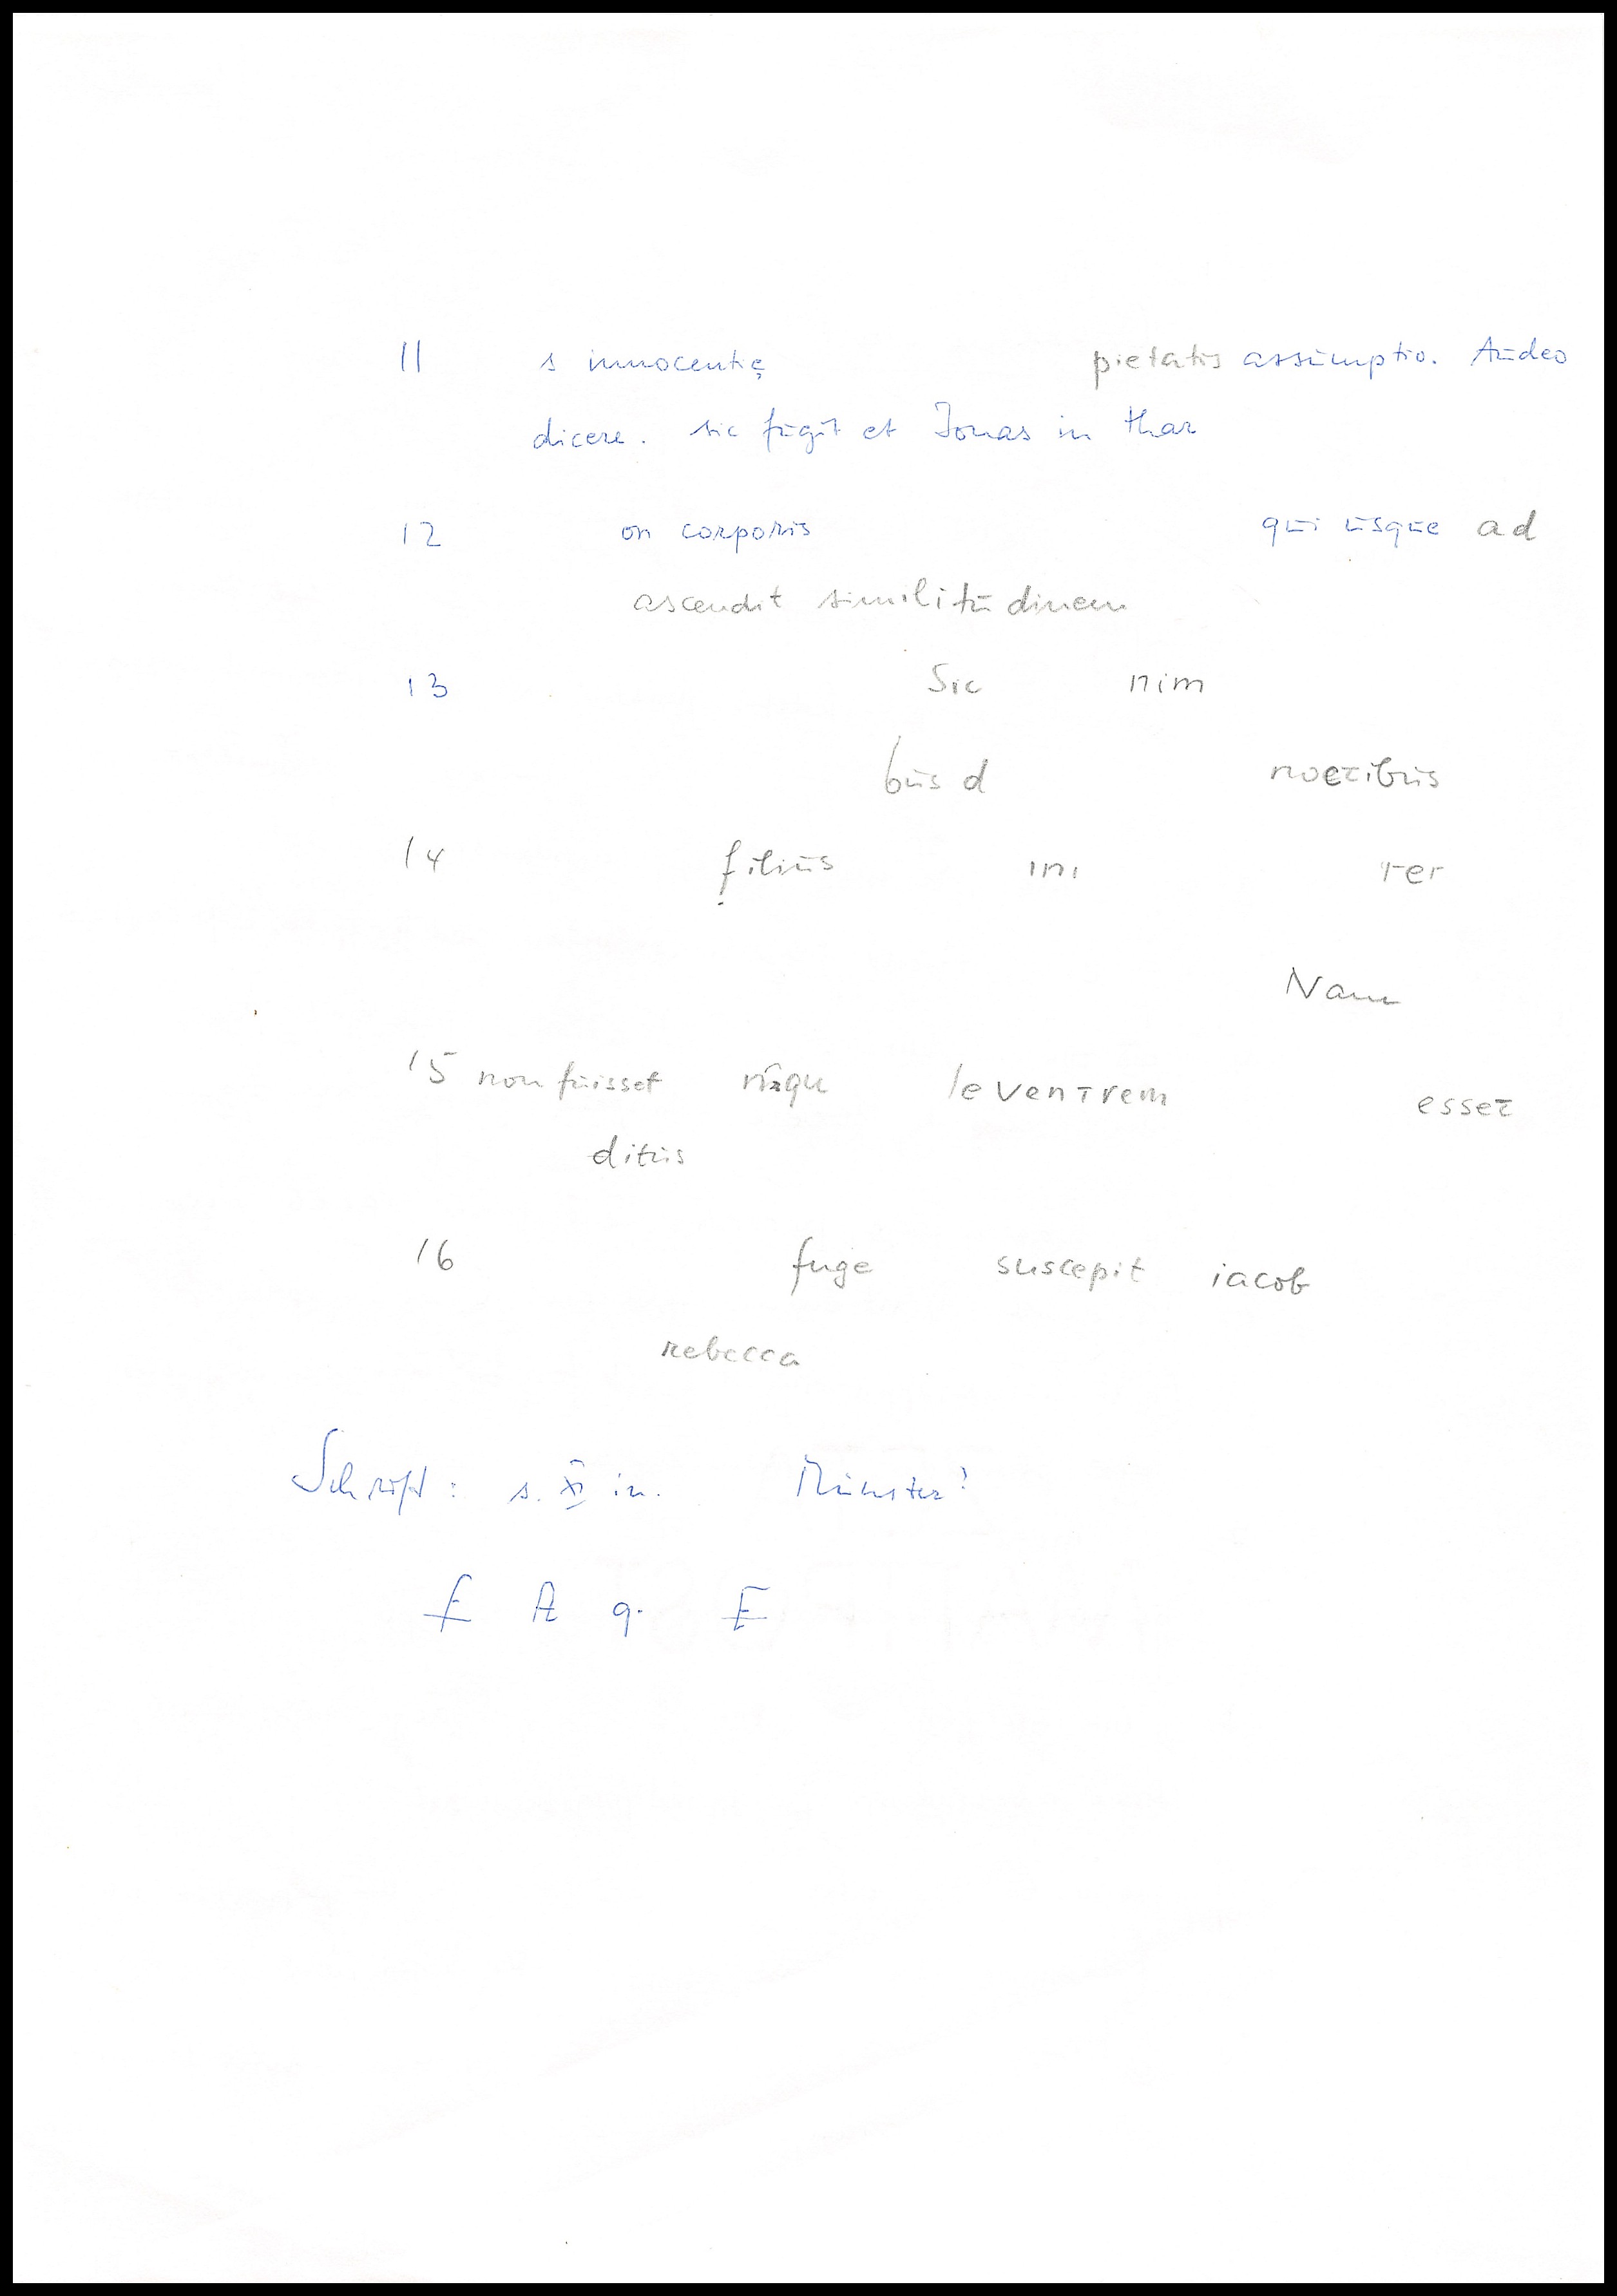 11 s innocentię pietatis assumptio. Audeo
dicere. sic fugit et Jonas in thar
12 on corporis qui usque ad
ascendit similitudinem
13 Sic nim
bus d noctibus
14 filius ini ter
Nam
15 non fuisset le ventrem esset
ditus
16 fuge suscepit iacob
rebecca
Schrift: s. XI in. Münster?